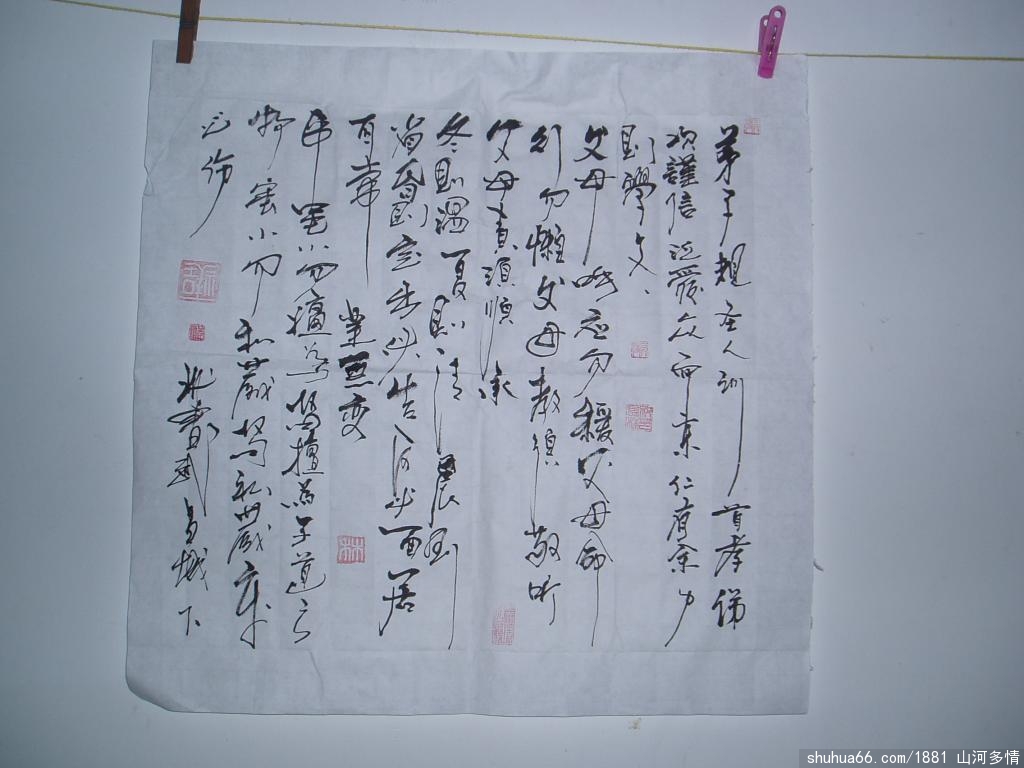 弟子規圣人訓首孝悌
次謹信泛愛众而亲仁有余力
則學文
父母呼应勿緩父母命
行勿懶父母教須敬听
父母責須順承
冬則温夏則凊晨則
省昏則定出必告反必面居
有常業無变
事虽小勿擅为苟擅為子道亏
物虽小勿私藏苟私藏亲
心伤
城下
shuhua66.com/1881 山河多情